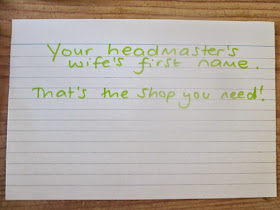 Your headmaster's
wife's first name.
That's the shop you need!